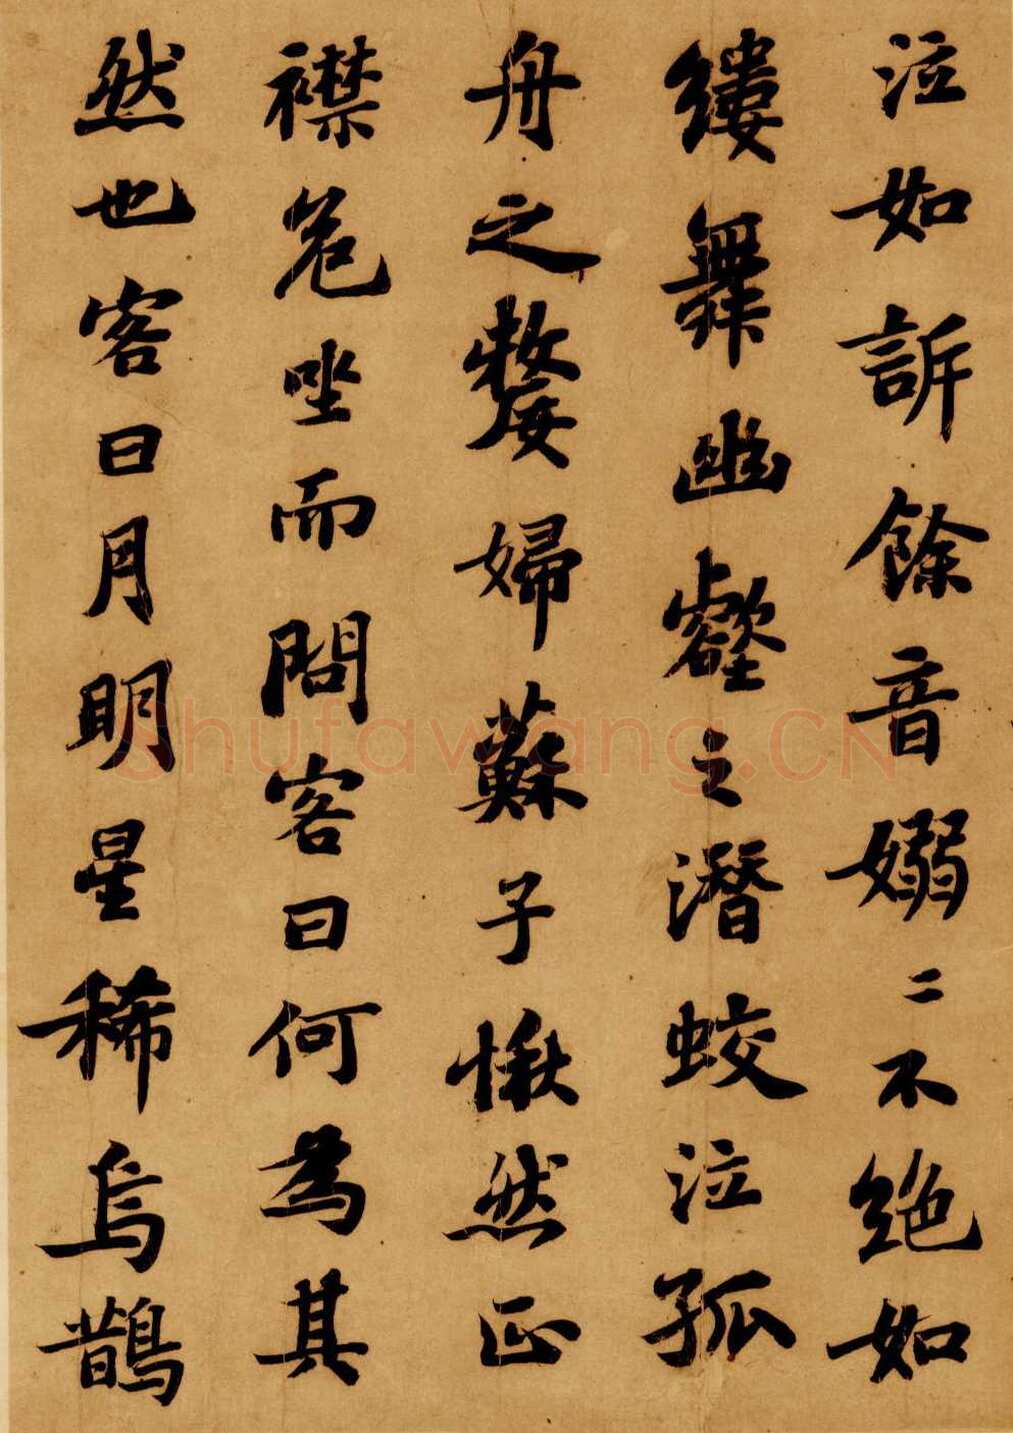 泣如訴餘音嫋〻不絕如
縷舞幽壑之潛蛟泣孤
舟之嫠婦蘇子愀然正
襟危坐而問客曰何為其
然也客曰月明星稀烏鵲
Shufawang.CN